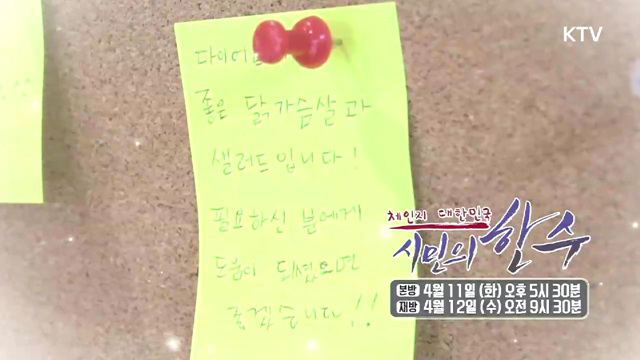 KTV
다이어
좋은 닭가슴살과
샐러드입니다!
필요하신 분에게
도움이 되셨으면
좋겠습니다!!
체인지 대한민국
시민의 한 수
본방 4월 11일 (화) 오후 5시 30분
재방 4월 12일 (수) 오전 9시 30분